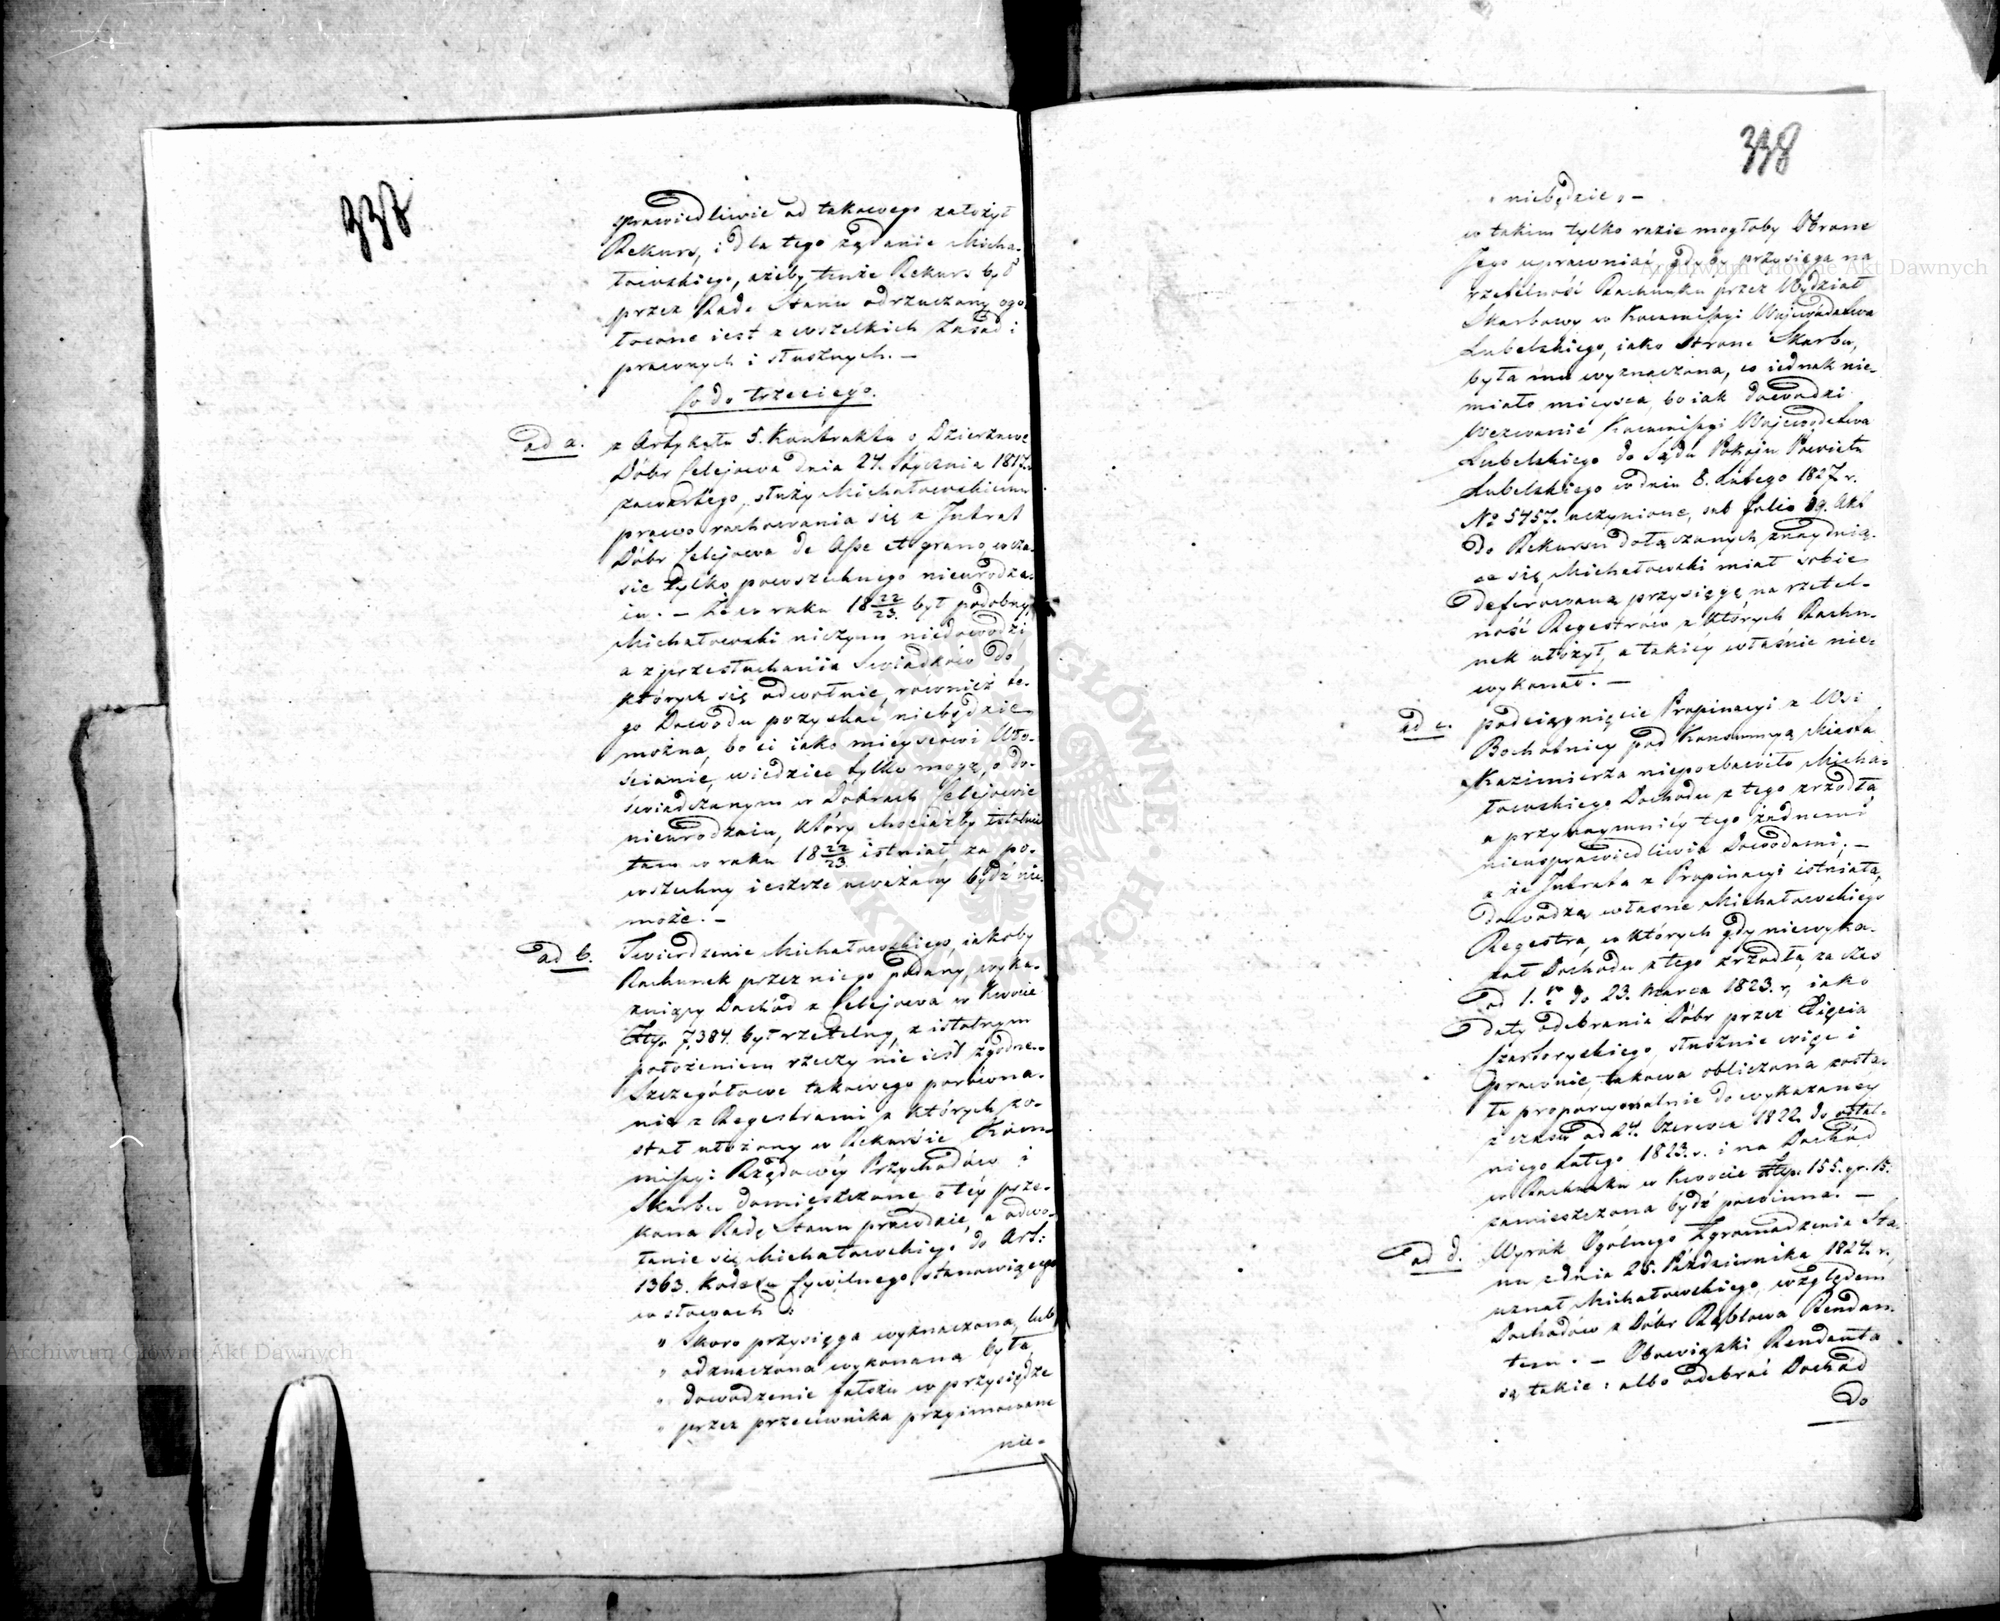 337
sprawiedliwie od takowego założył
Rekurs, i dla tego żądanie Micha-
łowskiego, ażeby tenże Rekurs był
przez Radę Stanu odrzucony ogo-
łocone iest z wszelkich Zasad
prawnych i słusznych. –
Co do trzeciego.
ad a. z Artykułu 5. Kontraktu o Dzierżawę
Dóbr Celejowa dnia 24. Stycznia 1817. r.
zawartego, służy Michałowskiemu
prawo rachowania się z Intrat
Dóbr Celejowa de Asse et grano, w cza-
sie tylko powszechnego nieurodza-
iu. – Że w roku 18 22/23. był podobny,
Michałowski niczym niedowodzi
a z przesłuchania Swiadków do
których się odwołuie, rownież te-
go Dowodu pozyskać niebędzie
można, bo ci iako mieyscowi Wło-
ścianie, wiedzieć tylko mogą, o do-
świadczanym w Dobrach Celejowie
nieurodzaiu, który chociażby istotnie
tam w roku 18 22/23. istniał, za po-
wszechny ieszcze uważany bydź nie-
może. –
ad b. Twierdzenie Michałowskiego, iakoby
Rachunek przez niego podany, wyka-
zuiący Dochód z Celejowa w kwocie
Złp. 7,384. był rzetelny, z istotnym
położeniem rzeczy nie iest zgodne.
Szczegółowe takowego porówna-
nie z Regestrami z których zo-
stał ułożony w Rekursie Kom-
missyi Rządowéy Przychodów i
Skarbu domieszczone, o téy prze-
kona Radę Stanu prawdzie, a odwo-
łanie się Michałowskiego do Art:
1363. Kodexu Cywilnego stanowiącego
w słowach:
„ Skoro przysięga wyznaczona, lub
„ odznaczona wykonaną była,
„ dowodzenie fałszu w przysiędze
„ przez przeciwnika przyimowane
nie-
338
„ niebędzie, –
w takim tylko razie mogłoby Obronę
Jego uprawniać, gdyby przysięga na
rzetelność Rachunku przez Wydział
Skarbowy w Kommissyi Województwa
Lubelskiego, iako Stronę Skarbu,
była mu wyznaczona, co iednak nie-
miało mieysca, bo iak dowodzi
Wezwanie Kommissyi Województwa
Lubelskiego do Sądu Pokoju Powiatu
Lubelskiego w dniu 8. Lutego 1827 r.
No 5457. uczynione, sub folio 39. Akt
do Rekursu dołączonych znayduią-
ce się, Michałowski miał sobie
deferowaną przysięgę na rzetel-
ność Regestrów z których Rachu-
nek ułożył, a takiéy właśnie nie-
wykonał. –
ad c. podciągnięcie Propinacyi z Wsi
Bochotnicy pod Konsumpcyą Miasta
Kazimierza niepozbawiło Micha-
łowskiego Dochodu z tego zrzodła
a przynaymniéy tego żadnemi
nieusprawiedliwia Dowodami; –
a że Intrata z Propinacyi istniała,
dowodzą własne Michałowskiego
Regestra, w których gdy niewyka-
zał Dochodu z tego zrzodła za czas
od 1. go do 23. Marca 1823. r, iako
daty odebrania Dóbr przez Xięcia
Czartoryskiego, słusznie więc i
prawnie, takowa obliczona zosta-
ła proporcyonalnie do wykazanéy
z czasu od 24. Czerwca 1822. do ostat-
niego Lutego 1823. r. i na Dochód
w Rachunku w kwocie Złp. 155. gr. 15.
zamieszczona bydź powinna. –
ad d. Wyrok Ogólnego Zgromadzenia Sta-
nu z dnia 25. Października 1824. r,
uznał Michałowskiego, względem
Dochodów z Dóbr Rąblowa Rendan-
tem. – Obowiązki Rendanta
są takie: albo odebrać Dochód
do
Archiwum Główne Akt Dawnych
Archiwum Główne Akt Dawnych